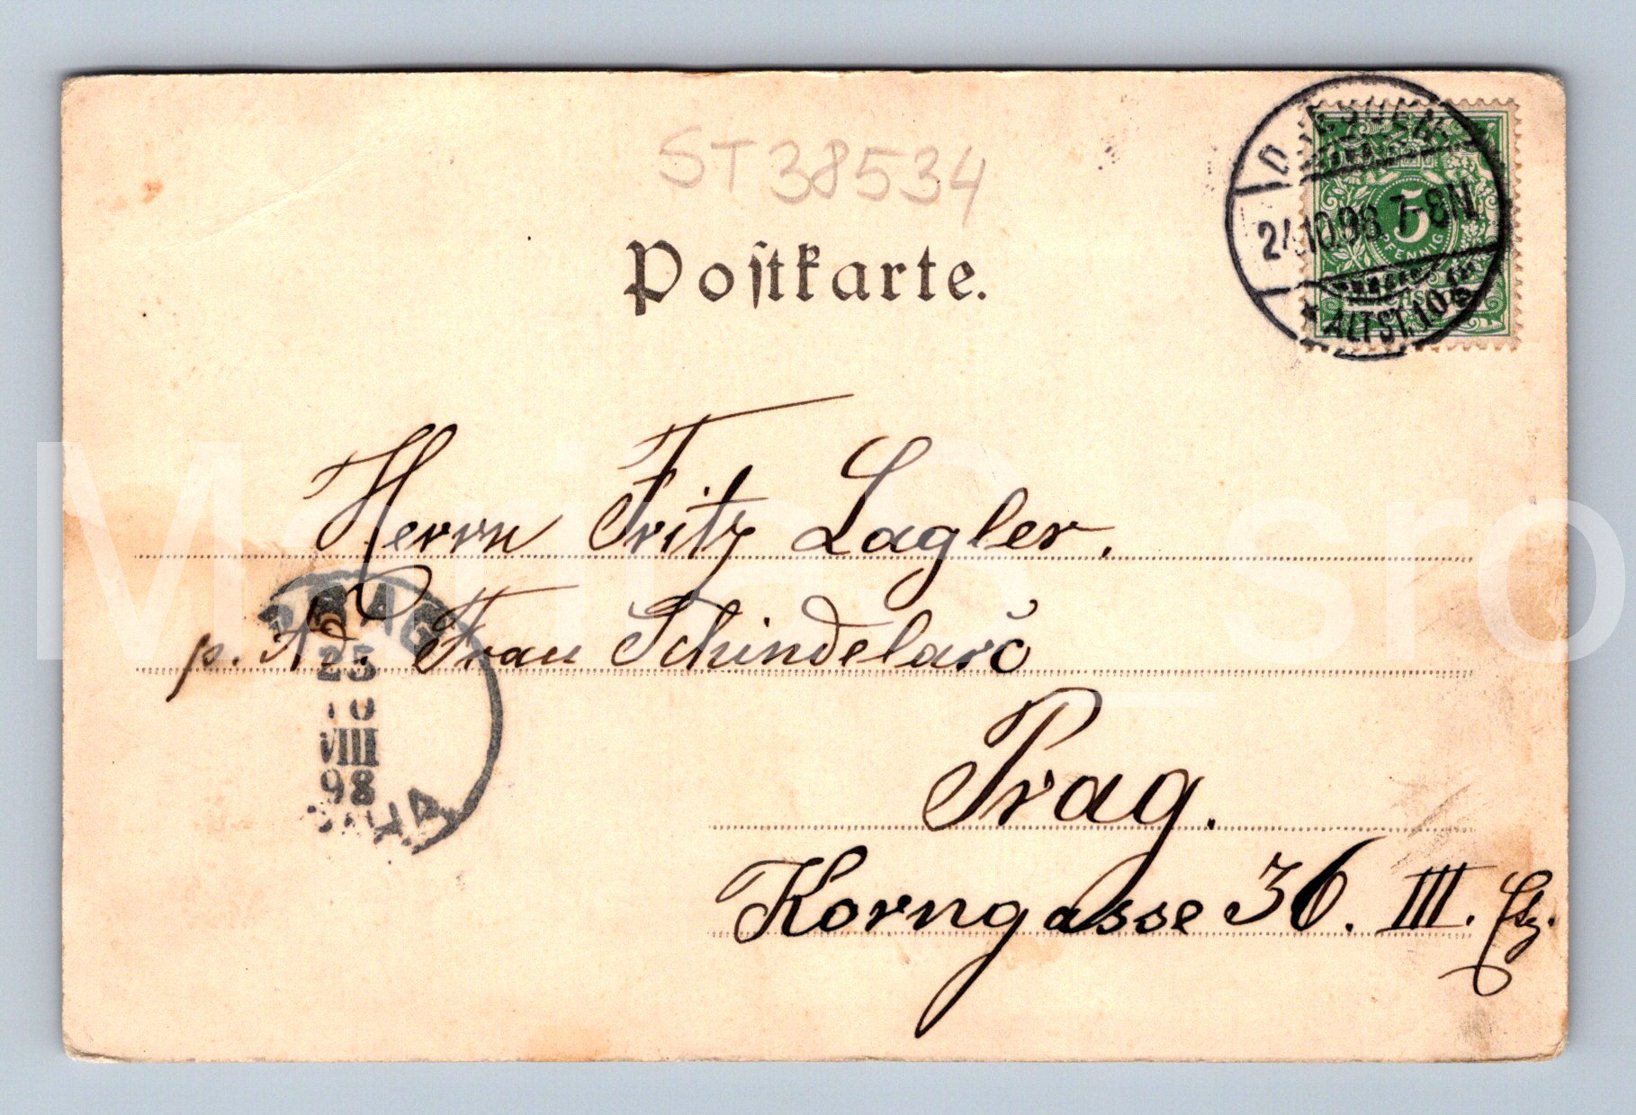 ST38534
Postkarte.
DRESDEN-
10.98. 7-8N.
* ALTST. 10
5
PFENNIG
Herrn Fritz Lagler.
p. Ad. Frau Schindelarč
Prag.
Korngasse 36. III.
PRAG
25
10
VIII
98